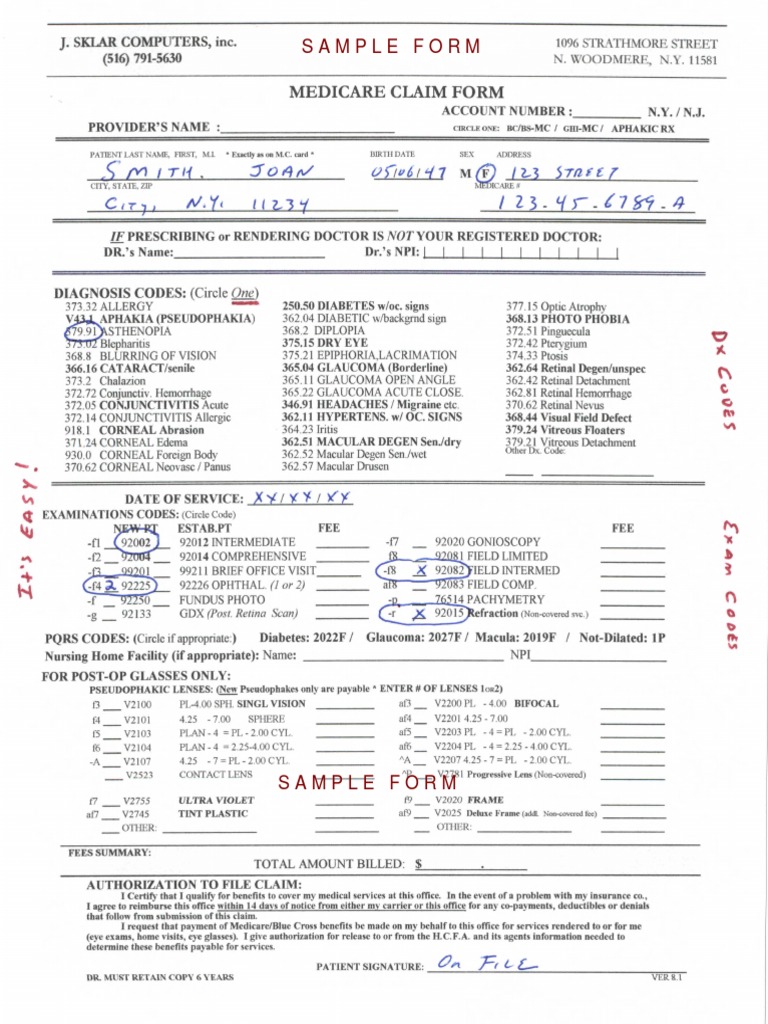 J. SKLAR COMPUTERS, inc. SAMPLE FORM 1096 STRATHMORE STREET
(516) 791-5630 N. WOODMERE, N.Y. 11581
MEDICARE CLAIM FORM
ACCOUNT NUMBER : N.Y. / N.J.
PROVIDER'S NAME : CIRCLE ONE: BC/BS-MC / GHI-MC / APHAKIC RX
PATIENT LAST NAME, FIRST, M.I. * Exactly as on M.C. card * BIRTH DATE SEX ADDRESS
SMITH. JOAN 05/06/47 M F 123 STREET
CITY, STATE, ZIP MEDICARE #
CITY, N.Y. 11234 123-45-6789-A
IF PRESCRIBING or RENDERING DOCTOR IS NOT YOUR REGISTERED DOCTOR:
DR.'s Name: Dr.'s NPI:
DIAGNOSIS CODES: (Circle One)
373.32 ALLERGY 250.50 DIABETES w/oc. signs 377.15 Optic Atrophy
V43.1 APHAKIA (PSEUDOPHAKIA) 362.04 DIABETIC w/backgrnd sign 368.13 PHOTO PHOBIA
379.91 ASTHENOPIA 368.2 DIPLOPIA 372.51 Pinguecula
373.02 Blepharitis 375.15 DRY EYE 372.42 Pterygium
368.8 BLURRING OF VISION 375.21 EPIPHORIA,LACRIMATION 374.33 Ptosis
366.16 CATARACT/senile 365.04 GLAUCOMA (Borderline) 362.64 Retinal Degen/unspec
373.2 Chalazion 365.11 GLAUCOMA OPEN ANGLE 362.42 Retinal Detachment
372.72 Conjunctiv. Hemorrhage 365.22 GLAUCOMA ACUTE CLOSE. 362.81 Retinal Hemorrhage
372.05 CONJUNCTIVITIS Acute 346.91 HEADACHES / Migraine etc. 370.62 Retinal Nevus
372.14 CONJUNCTIVITIS Allergic 362.11 HYPERTENS. w/ OC. SIGNS 368.44 Visual Field Defect
918.1 CORNEAL Abrasion 364.23 Iritis 379.24 Vitreous Floaters
371.24 CORNEAL Edema 362.51 MACULAR DEGEN Sen./dry 379.21 Vitreous Detachment
930.0 CORNEAL Foreign Body 362.52 Macular Degen Sen./wet Other Dx. Code:
370.62 CORNEAL Neovasc / Panus 362.57 Macular Drusen
Dx CODES
It's EASY!
DATE OF SERVICE: XX/XX/XX
EXAMINATIONS CODES: (Circle Code)
NEW PT ESTAB.PT FEE FEE
-f1 92002 92012 INTERMEDIATE -f7 92020 GONIOSCOPY
-f2 92004 92014 COMPREHENSIVE f8 92081 FIELD LIMITED
-f3 99201 99211 BRIEF OFFICE VISIT -f8 X 92082 FIELD INTERMED
-f4 2 92225 92226 OPHTHAL. (1 or 2) af8 92083 FIELD COMP.
-f 92250 FUNDUS PHOTO -p 76514 PACHYMETRY
-g 92133 GDX (Post. Retina Scan) -r X 92015 Refraction (Non-covered svc.)
EXAM CODES
PQRS CODES: (Circle if appropriate:) Diabetes: 2022F / Glaucoma: 2027F / Macula: 2019F / Not-Dilated: 1P
Nursing Home Facility (if appropriate): Name: NPI
FOR POST-OP GLASSES ONLY:
PSEUDOPHAKIC LENSES: (New Pseudophakes only are payable * ENTER # OF LENSES 1or2)
f3 V2100 PL-4.00 SPH. SINGL VISION af3 V2200 PL - 4.00 BIFOCAL
f4 V2101 4.25 - 7.00 SPHERE af4 V2201 4.25 - 7.00
f5 V2103 PLAN - 4 = PL - 2.00 CYL. af5 V2203 PL - 4 = PL - 2.00 CYL.
f6 V2104 PLAN - 4 = 2.25-4.00 CYL. af6 V2204 PL - 4 = 2.25 - 4.00 CYL.
-A V2107 4.25 - 7 = PL - 2.00 CYL. ^A V2207 4.25 - 7 = PL - 2.00 CYL.
V2523 CONTACT LENS V2781 Progressive Lens (Non-covered)
SAMPLE FORM
f7 V2755 ULTRA VIOLET f9 V2020 FRAME
af7 V2745 TINT PLASTIC af9 V2025 Deluxe Frame (addl. Non-covered fee)
OTHER: OTHER:
FEES SUMMARY:
TOTAL AMOUNT BILLED: $ .
AUTHORIZATION TO FILE CLAIM:
I Certify that I qualify for benefits to cover my medical services at this office. In the event of a problem with my insurance co.,
I agree to reimburse this office within 14 days of notice from either my carrier or this office for any co-payments, deductibles or denials
that follow from submission of this claim.
I request that payment of Medicare/Blue Cross benefits be made on my behalf to this office for services rendered to or for me
(eye exams, home visits, eye glasses). I give authorization for release to or from the H.C.F.A. and its agents information needed to
determine these benefits payable for services.
PATIENT SIGNATURE: On FILE
DR. MUST RETAIN COPY 6 YEARS VER 8.1